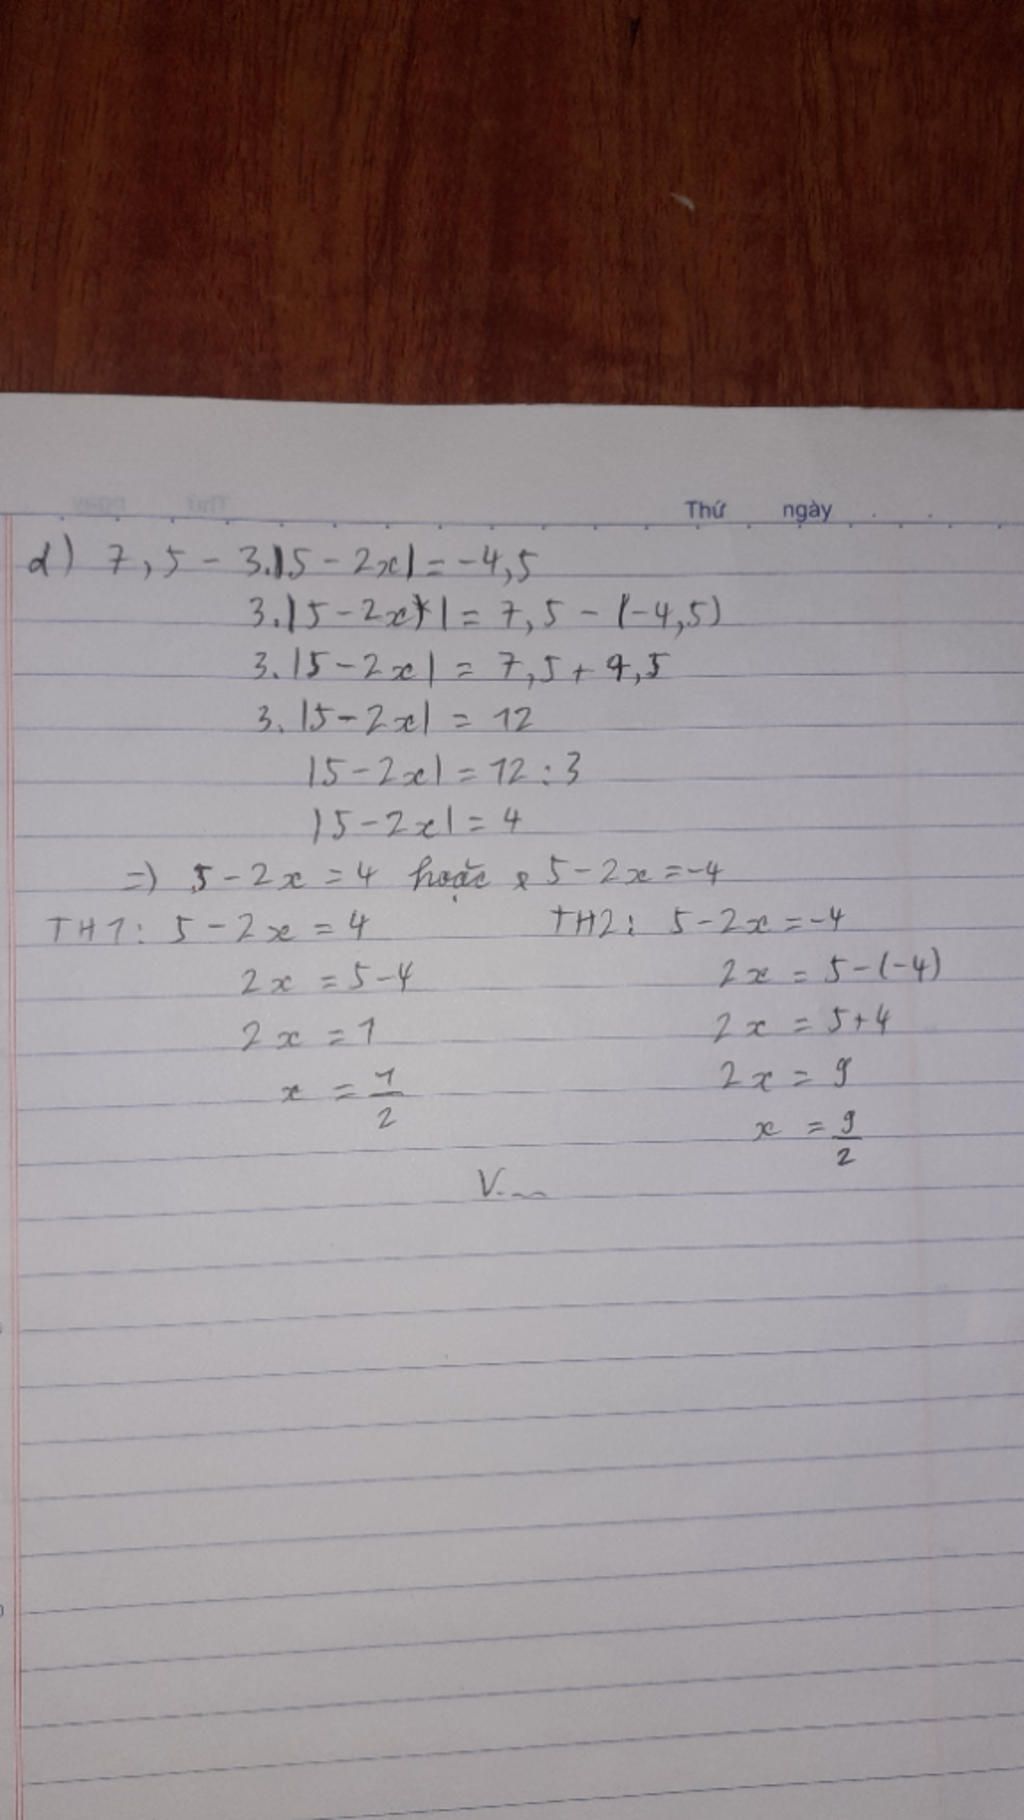 Thứ ngày
d) 7,5 - 3.|5 - 2x| = -4,5
3.|5 - 2x| = 7,5 - (-4,5)
3.|5 - 2x| = 7,5 + 4,5
3.|5 - 2x| = 12
|5 - 2x| = 12 : 3
|5 - 2x| = 4
=) 5 - 2x = 4 hoặc 5 - 2x = -4
TH1: 5 - 2x = 4 TH2: 5 - 2x = -4
2x = 5 - 4 2x = 5 - (-4)
2x = 1 2x = 5 + 4
x = 1/2 2x = 9
x = 9/2
V...